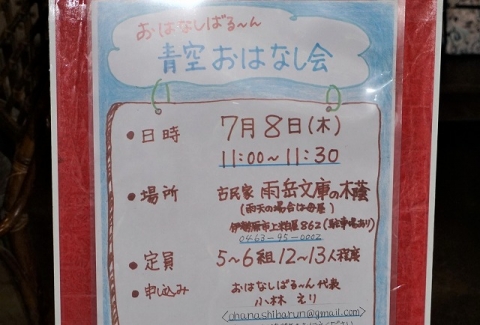 おはなしばる〜ん
青空おはなし会
● 日時 7月8日(木)
11:00〜11:30
● 場所 古民家 雨岳文庫の木蔭
(雨天の場合は母屋)
伊勢原市上粕屋862(駐車場あり)
0463-95-0002
● 定員 5〜6組 12〜13人程度
● 申込み おはなしばる〜ん代表
小林 えり
<ohanashibarun@gmail.com>